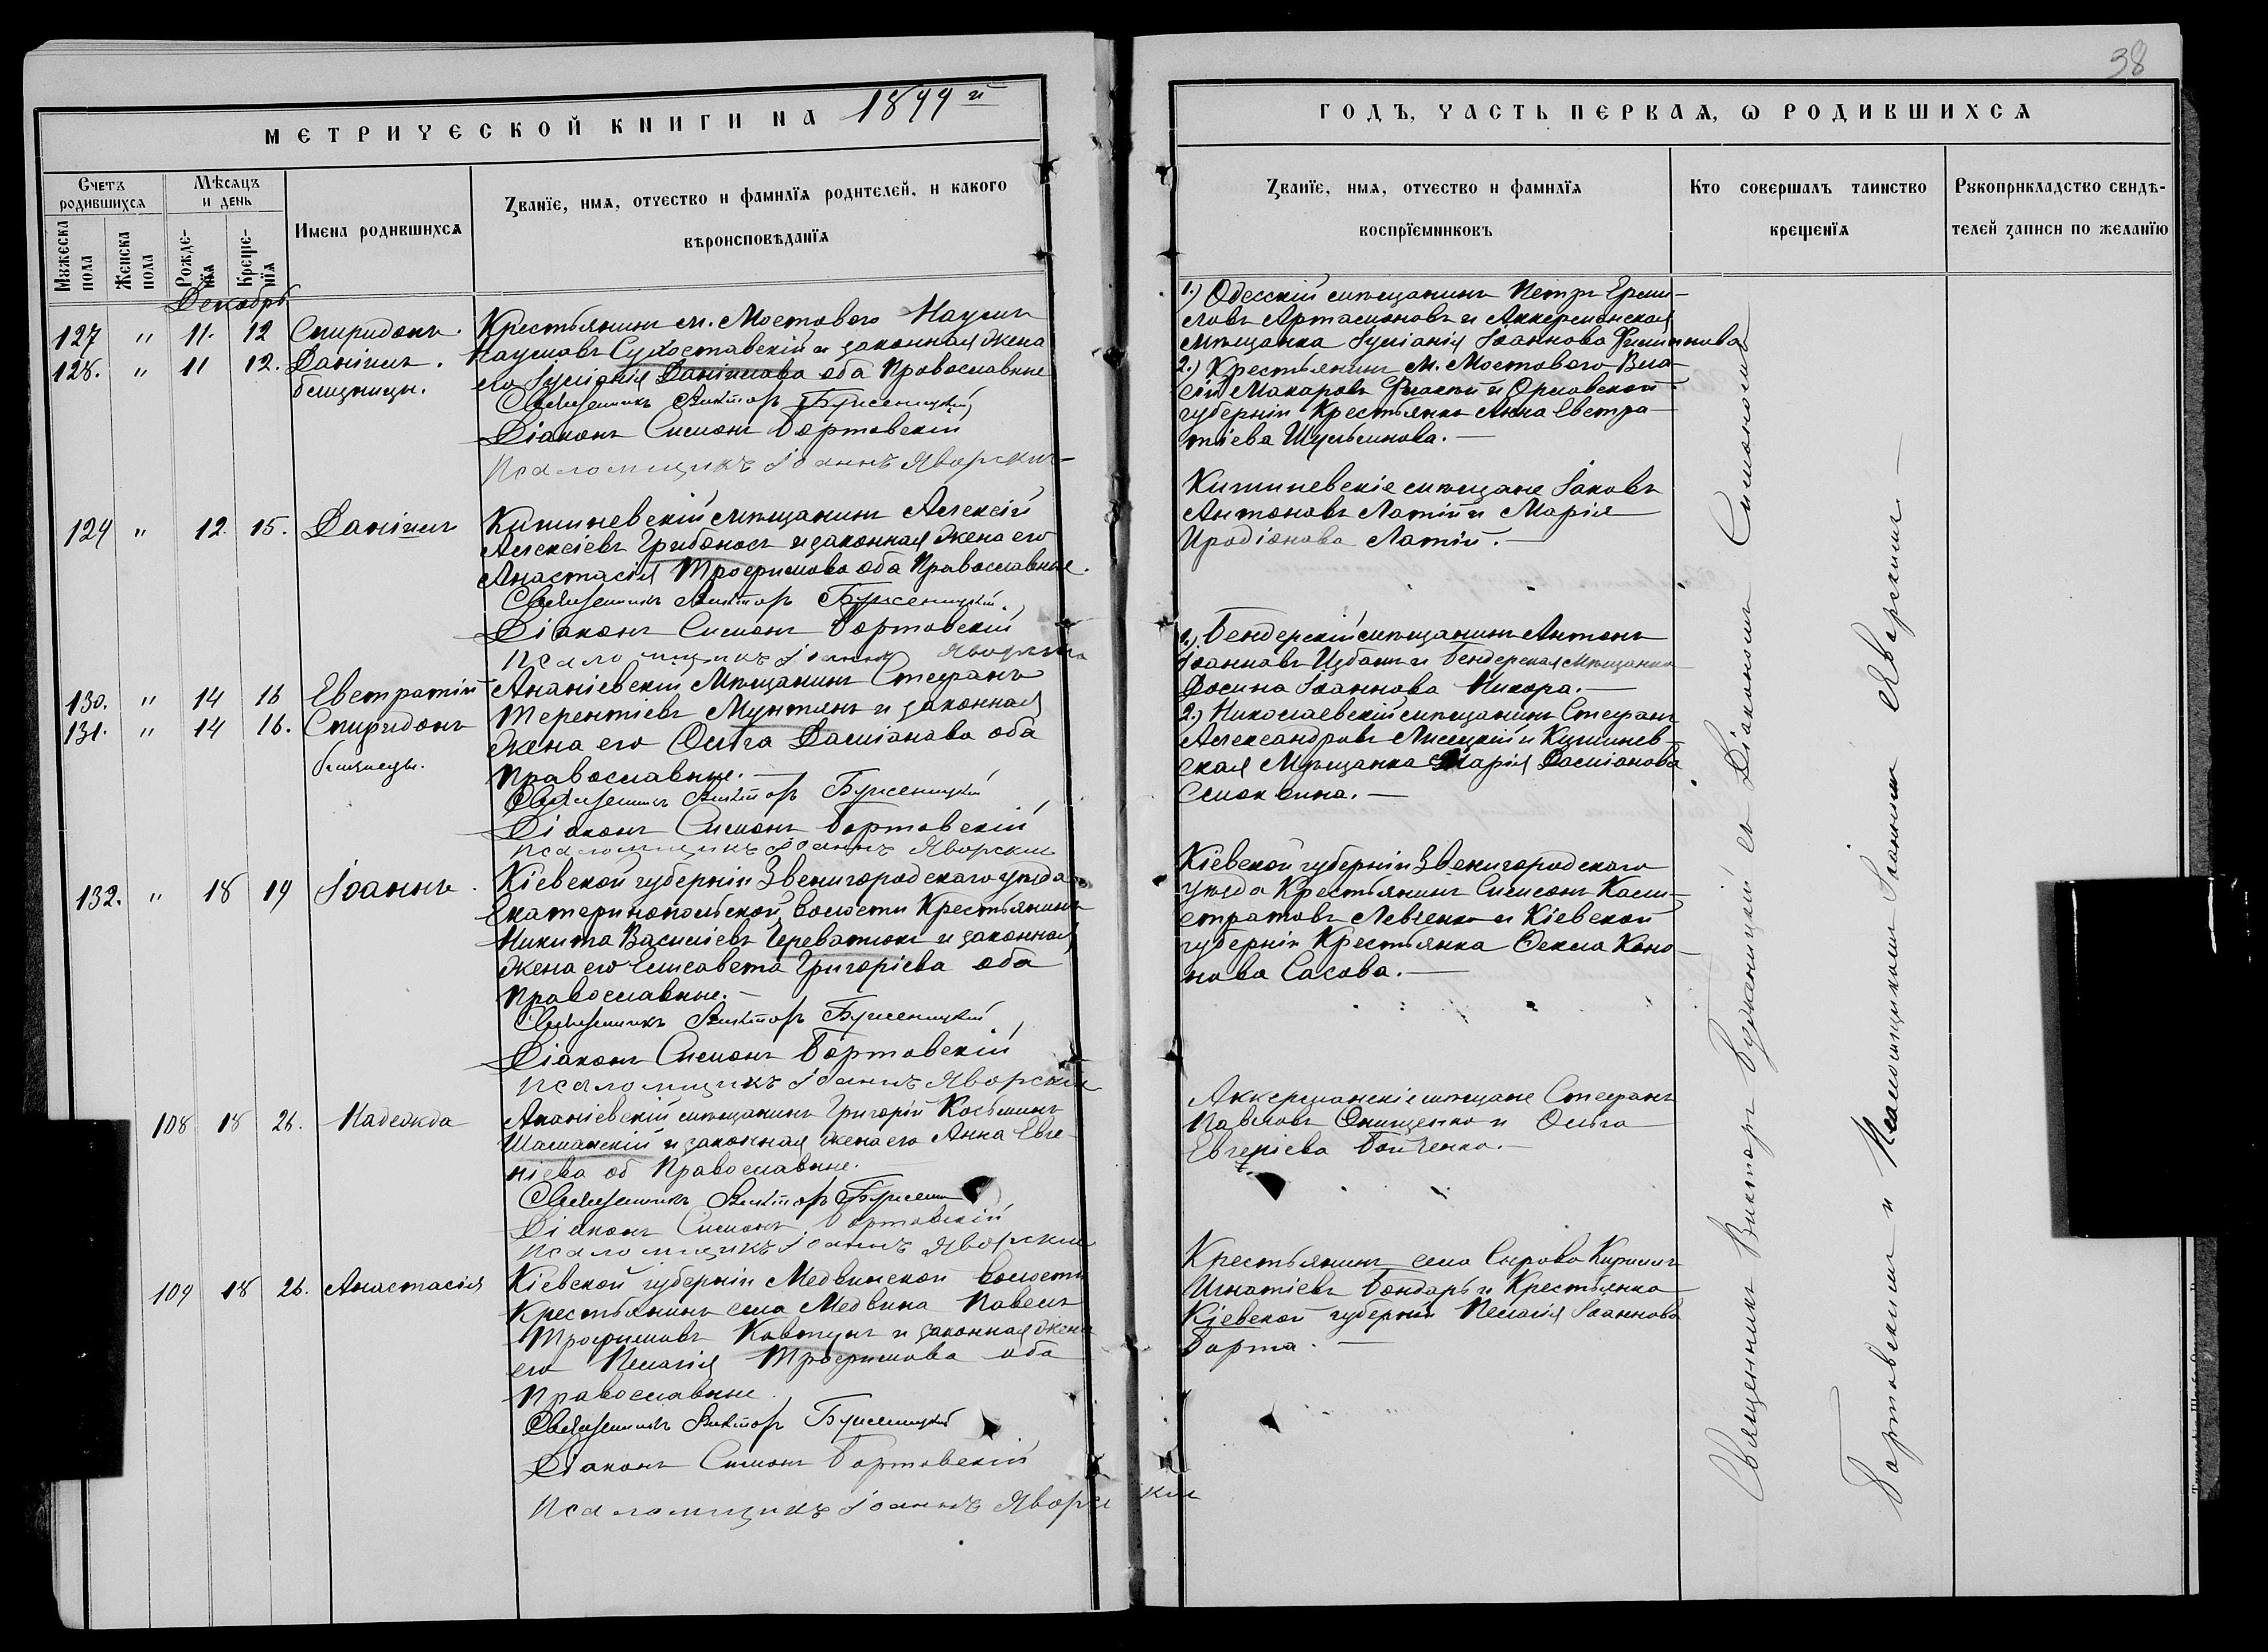 38
МЕТРИЧЕСКОЙ КНИГИ НА 1899й
ГОДЪ, ЧАСТЬ ПЕРВАЯ, Ѡ РОДИВШИХСЯ
Счетъ родившихся
Мѣсяцъ и день
Мужеска пола
Женска пола
Рожде-нїя
Креще-нїя
Имена родившихся
Званїе, имя, отчество и фамилїя родителей, и какого
вѣроисповѣданїя
Званїе, имя, отчество и фамилїя
воспрїемниковъ
Кто совершалъ таинство
крещенїя
Рукоприкладство свидѣ-
телей записи по желанїю
Декабрь
127 " 11. 12 Спиридонъ.
128. " 11 12. Даніилъ.
близнецы.
Крестьянинъ м. Мостового Наумъ
Наумовъ Сухоставскій и законная жена
его Іуліанія Даніилова оба Православные
Священникъ Викторъ Буженицкій
Діаконъ Симонъ Бортовскій
Псаломщикъ Іоаннъ Яворскій
1.) Одесскій мѣщанинъ Петръ Ерми-
ловъ Артамоновъ и Аккерманская
мѣщанка Іуліанія Іоаннова Филипова
2.) Крестьянинъ м. Мостового Вла-
сій Макаровъ и Орловской
губерніи Крестьянка Анна Евстра-
тіева Шульминова.
129 " 12. 15. Даніилъ
Кишиневскій мѣщанинъ Алексій
Алексіевъ Грибоносъ и законная жена его
Анастасія Трофимова оба Православные.
Священникъ Викторъ Буженицкій.
Діаконъ Симонъ Бортовскій
Псаломщикъ Іоаннъ Яворскій
Кишиневскіе мѣщане Іаковъ
Антоновъ Латій и Марія
Иродіонова Латій.
130. " 14 16 Евстратій
131. " 14 16. Спиридонъ
близнецы.
Ананіевскій Мѣщанинъ Стефанъ
Терентіевъ Мунтянъ и законная
жена его Ольга Даміанова оба
Православные.
Священникъ Викторъ Буженицкій
Діаконъ Симонъ Бортовскій
Псаломщикъ Іоаннъ Яворскій
1.) Бендерскій мѣщанинъ Антонъ
Іоанновъ Избашъ и Бендерская Мѣщанка
Досина Іоаннова Никора.
2.) Николаевскій мѣщанинъ Стефанъ
Александровъ Лисецкій и Кишинев-
ская Мѣщанка Марія Даміанова
Смоквина.
132. " 18 19 Іоаннъ.
Кіевской губерніи Звенигородскаго уѣзда
Екатеринопольской волости Крестьянинъ
Никита Василіевъ Череватюкъ и законная
жена его Елисавета Григоріева оба
Православные.
Священникъ Викторъ Буженицкій
Діаконъ Симонъ Бортовскій
Псаломщикъ Іоаннъ Яворскій
Кіевской губерніи Звенигородскаго
уѣзда Крестьянинъ Симеонъ Кали-
стратовъ Левченко и Кіевской
губерніи Крестьянка Фекла Коно-
нова Сасова.
108 18 26. Надежда
Ананіевскій мѣщанинъ Григорій Косьминъ
Шаманскій и законная жена его Анна Евге-
ніева об Православные.
Священникъ Викторъ Бужени
Діаконъ Симонъ Бортовскій
Псаломщикъ Іоаннъ Яворскій
Аккерманскіе мѣщане Стефанъ
Павловъ Онищенко и Ольга
Евгеніева Бойченко.
109 18 26. Анастасія
Кіевской губерніи Медвинской волости
Крестьянинъ села Медвина Павелъ
Трофимовъ Ковтунъ и законная жена
его Пелагія Трофимова оба
Православные.
Священникъ Викторъ Буженицкій
Діаконъ Симонъ Бортовскій
Псаломщикъ Іоаннъ Яворскій
Крестьянинъ села Сырово Кириллъ
Игнатіевъ Бондарь и Крестьянка
Кіевской губерніи Пелагія Іоаннова
Борта.
Священникъ Викторъ Бужиницкій съ Діакономъ Симономъ
Бортовскимъ и Псаломщикомъ Іоанномъ Яворскимъ